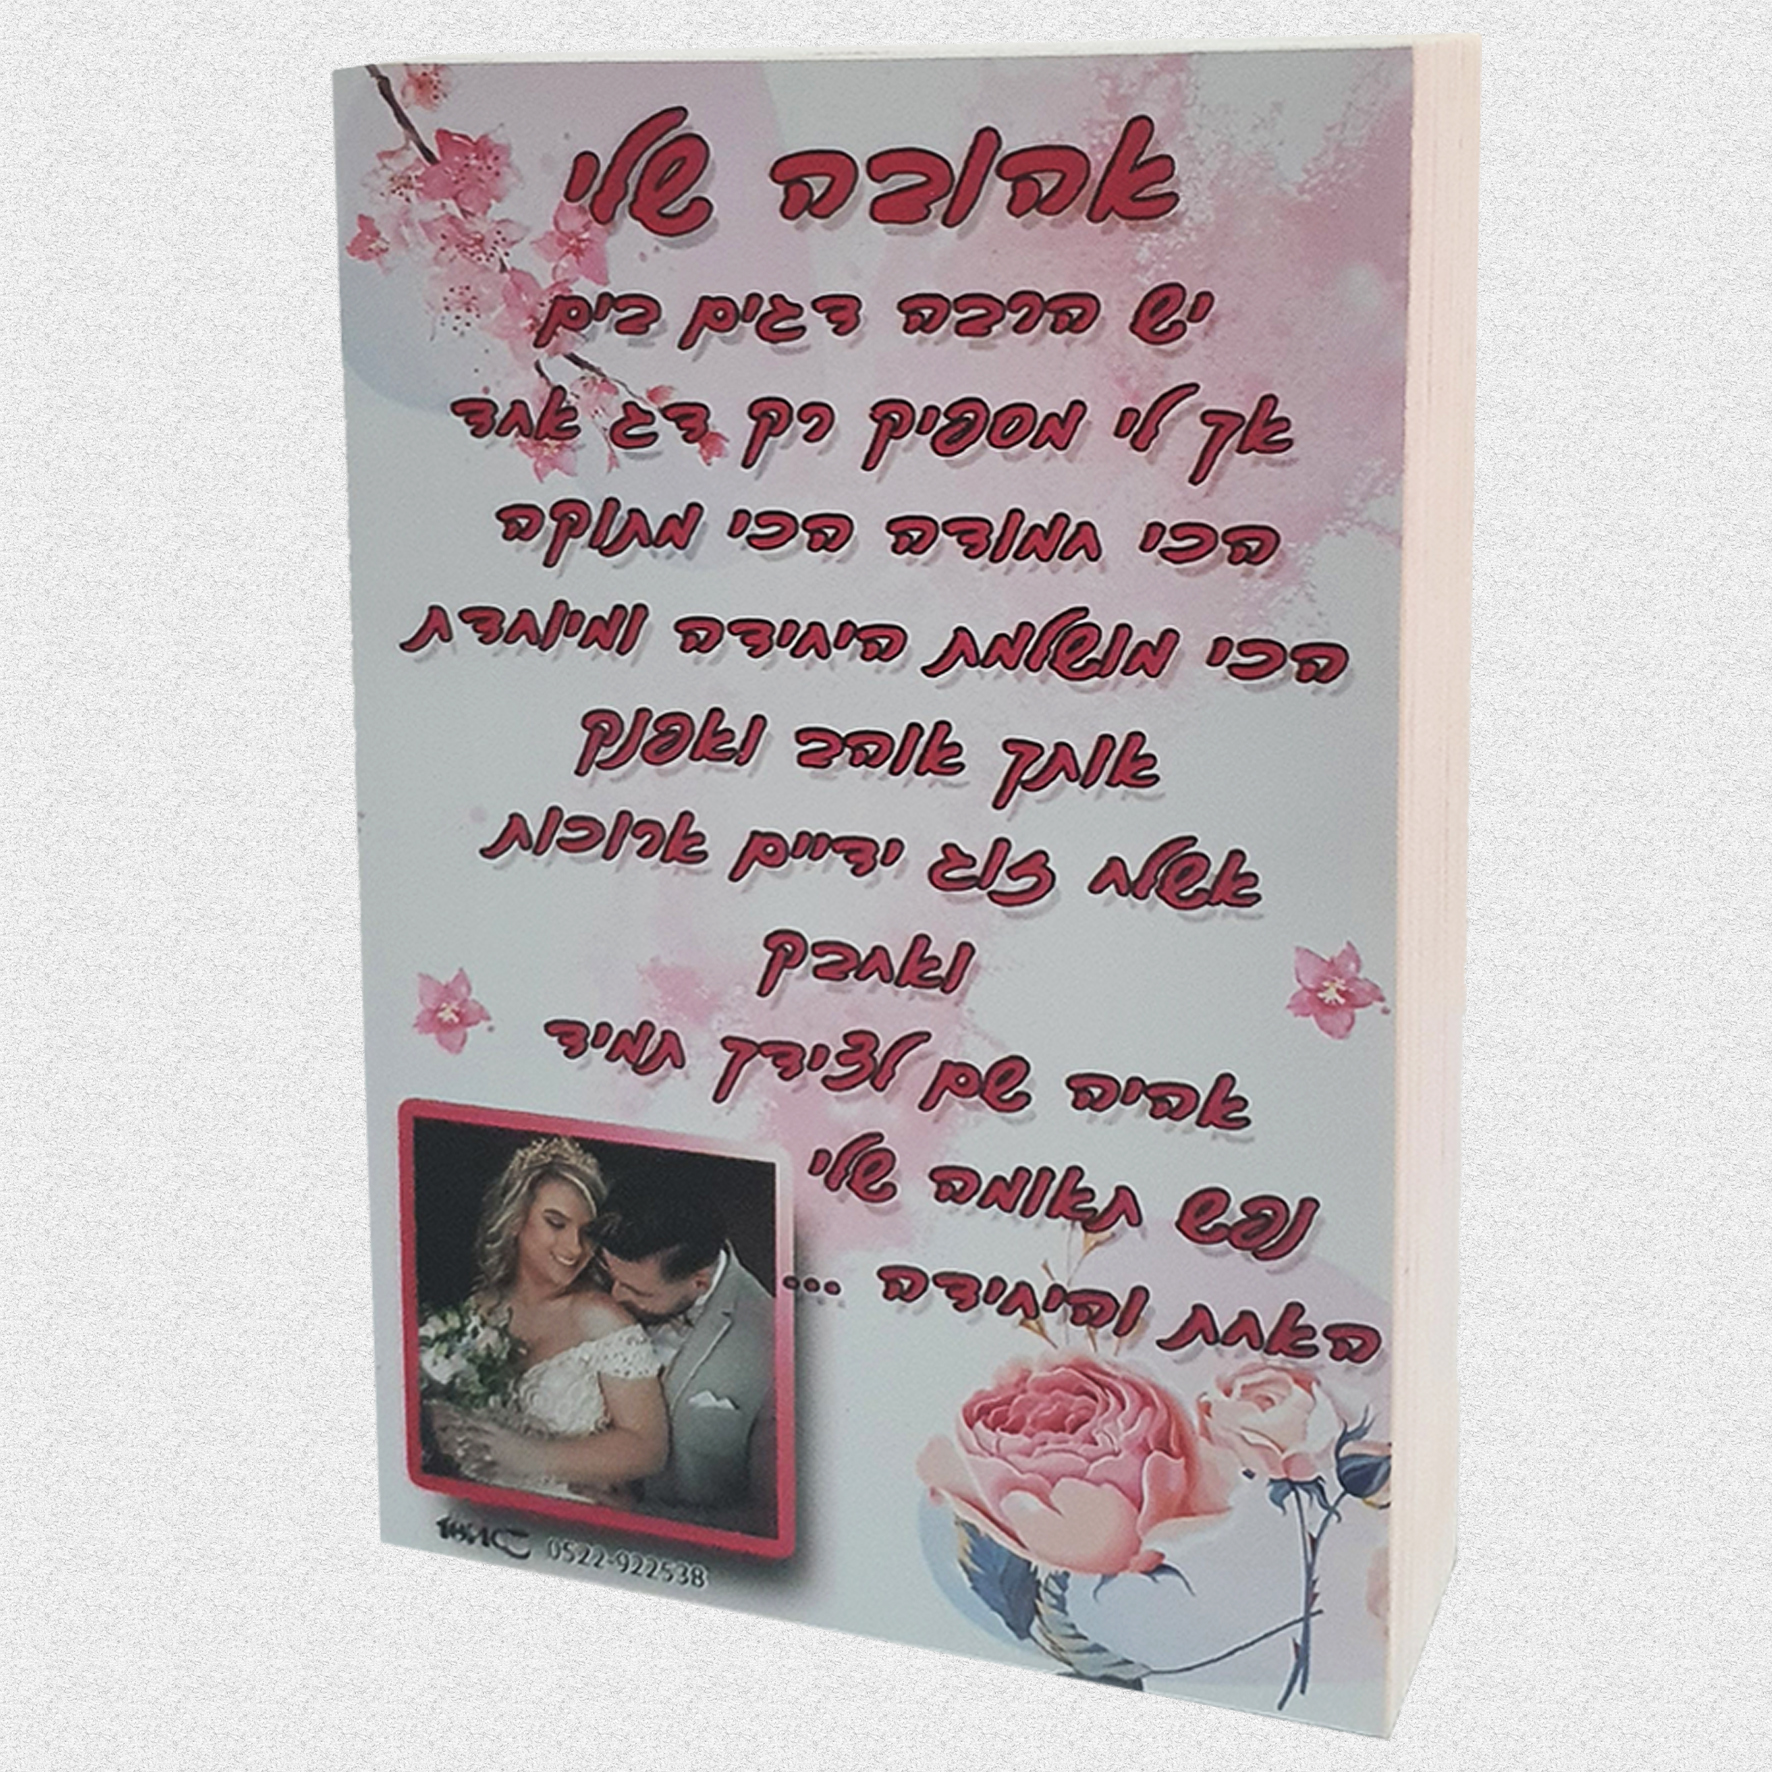 אהובה שלי
יש הרבה דגים בים
אך לי מספיק רק דג אחד
הכי חמודה הכי מתוקה
הכי מושלמת היחידה ומיוחדת
אותך אוהב ואפנק
אשלח זוג ידיים ארוכות
ואחבק
אהיה שם לצידך תמיד
נפש תאומה שלי
האחת והיחידה ...
0522-922538